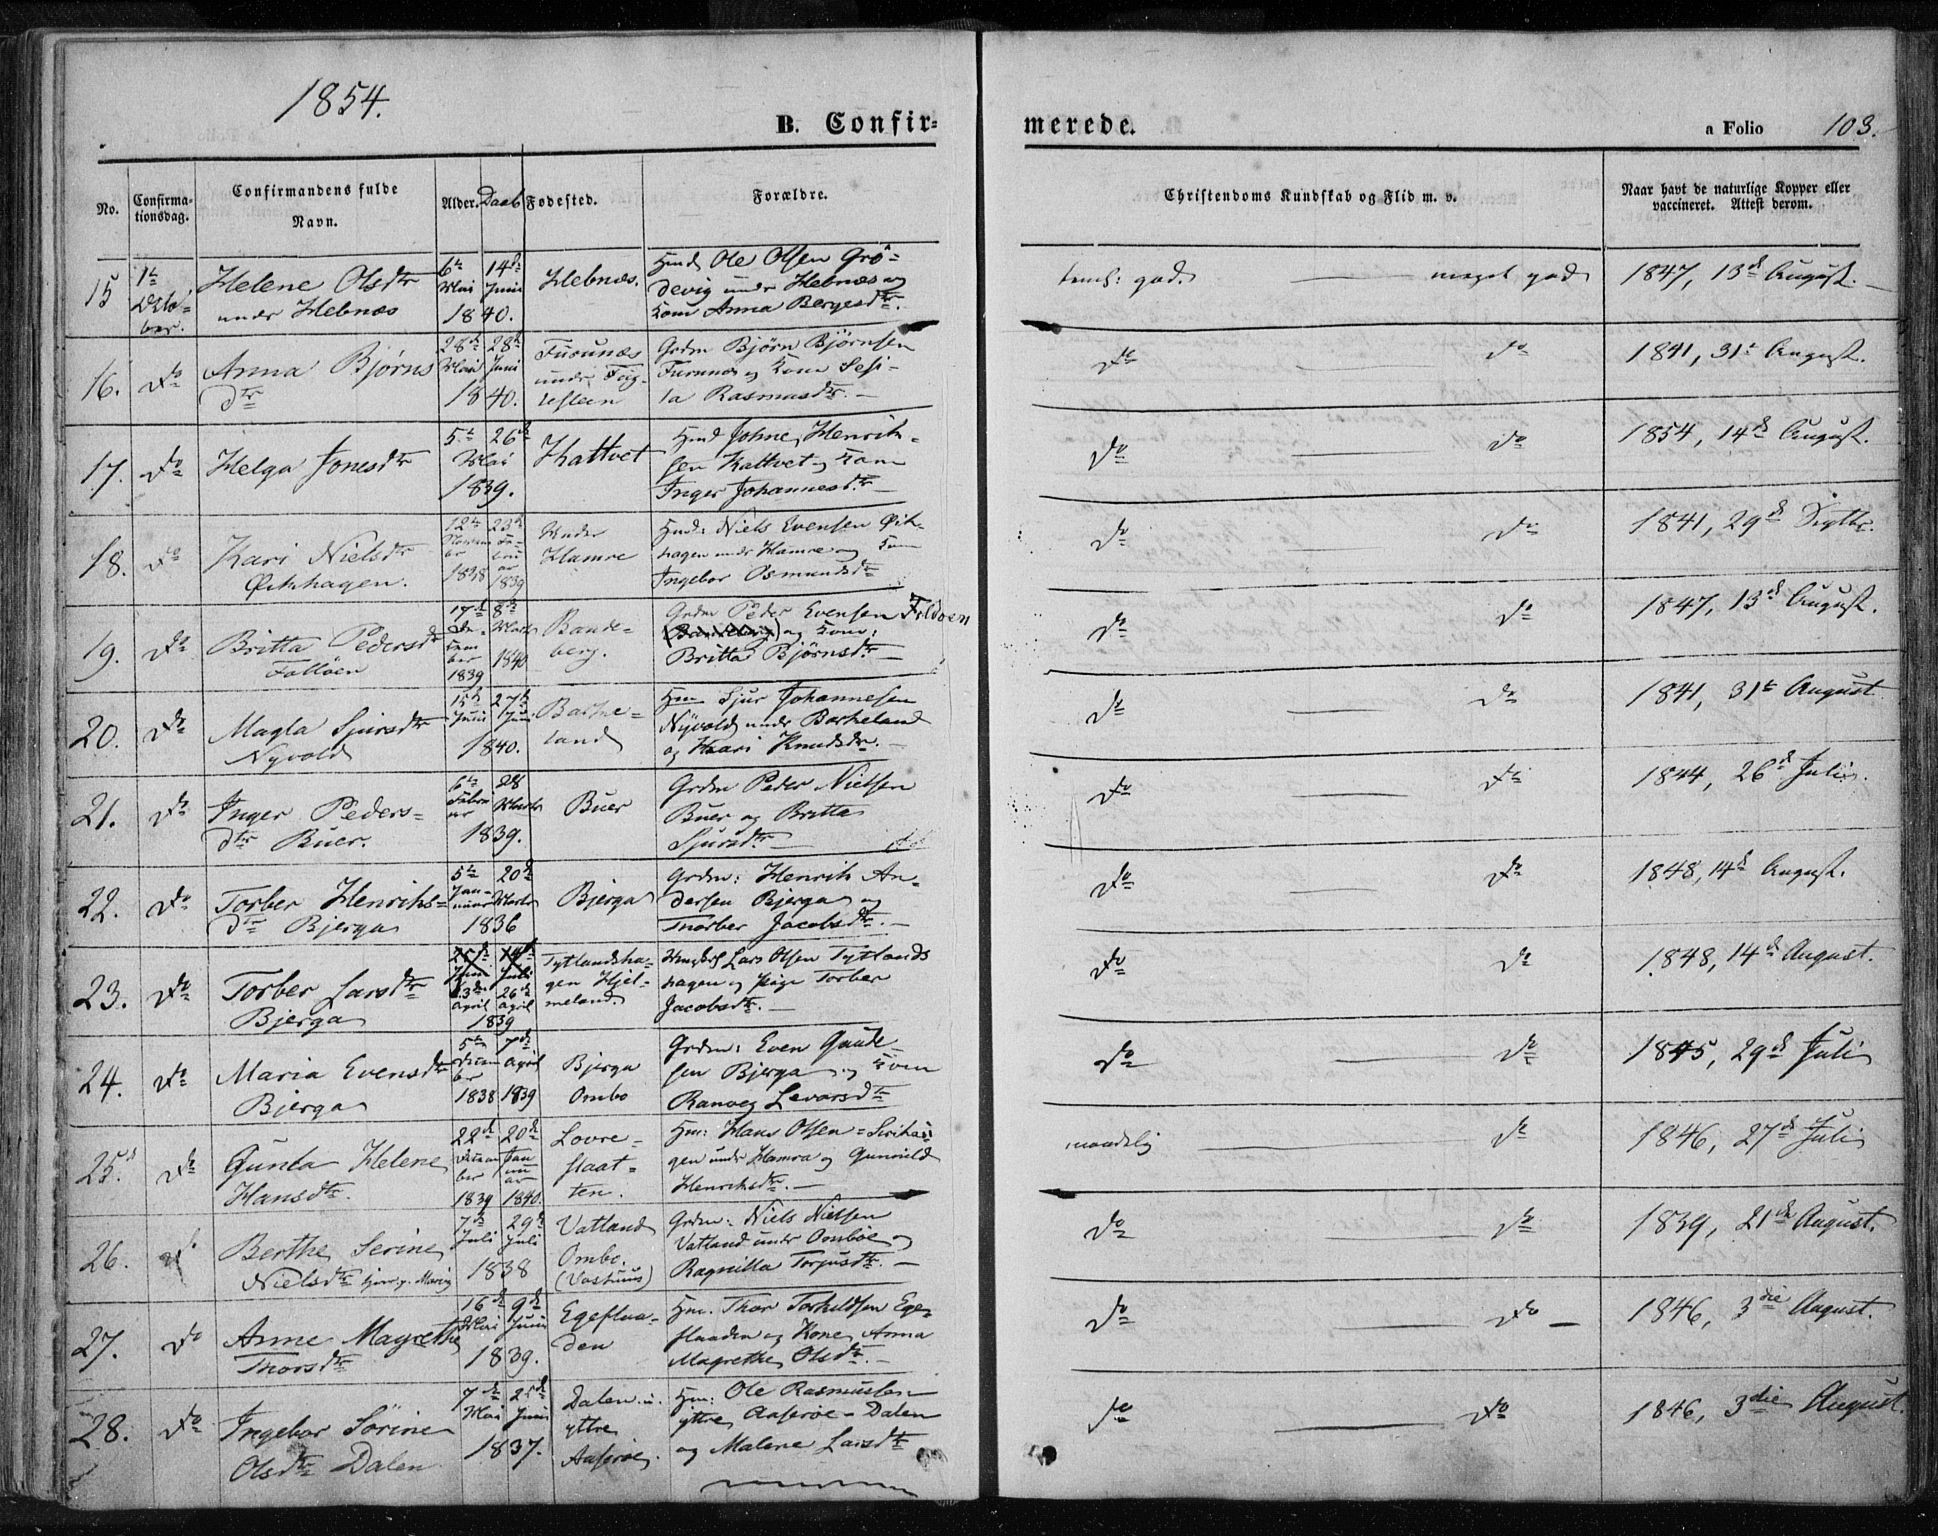 1854.
B. Confir-
merede.
a Folio 103.
No.
Confirma-
tionsdag.
Confirmandens fulde
Navn.
Alder. Daab Fødested.
Forældre.
Christendoms Kundskab og Flid m. v.
Naar havt de naturlige Kopper eller
vaccineret. Attest derom.
15 1te Octo-
ber.
Helene Olsdtr
under Hebnæs
6te Mai 14de Juni
1840.
Hebnæs.
Hmd Ole Olsen Grö-
devig under Hebnæs og
Kone Anna Bergesdtr.
teml: god. — meget god
1847, 13de August.
16. Do
Anna Bjørns
dtr
28de Mai 28de Juni
1840.
Furunæs
under
Grdm Bjørn Bjørnsen
Furunæs og Kone Sesi-
la Rasmusdtr.
Do — Do
1841, 31te August.
17. Do
Helga Jonesdtr
5te Mai 26de
1839.
Hattvet
Hmd Johne Henrik-
sen Hattvet og Kone
Inger Johannesdtr.
Do — Do
1854, 14de August.
18. Do
Kari Nielsdtr
Øikhagen.
12te Novem
ber
1838
23de Fe-
bru
ar
1839
Under
Hamre
Hmd: Niels Evensen Øik-
hagen under Hamre og Kone
Ingebor Osmundsdtr
Do — Do
1841, 29de Septbr.
19. Do
Britta Pedersdtr
Foldöen
17de De-
cem
ber
1839
8de Marts
1840
Bande-
berg.
Grdm Peder Evensen Foldöen
og Kone
Britta Bjørnsdtr
Do — Do
1847, 13de August.
20. Do
Magla Sjursdtr
Nyvold
15de Juni 27de Juni
1840.
Barke-
land
Hm Sjur Johannesen
Nÿvold under Barkeland
og Kaari Knudsdtr.
Do — Do
1841, 31te August
21. Do
Inger Peders-
dtr Buer.
6te Febru
ar 28 Marts
1839.
Buer
Grdm Peder Nielsen
Buer og Britta
Sjursdtr
Do — Do
1844, 26de Juli.
22. Do
Torber Henriks-
dtr Bjerga
5te Jan-
uar 20de Marts
1836
Bjerga
Grdm: Henrik An-
dersen Bjerga og
Thorber Jacobsdtr.
Do — Do
1848, 14de August.
23. Do
Torber Larsdtr
Bjerga
Juni Juli
13de April 26de April
1839
Tytlandsha-
gen Hjel-
meland.
Lars Olsen Tytlands
hagen og Pige Torber
Jacobsdtr.
Do — Do
1848, 14de August.
24. Do
Maria Evensdtr
Bjerga
5te Decem
ber
1838
7de April
1839
Bjerga
Ombo
Grdm: Even Gaute-
sen Bjerga og Kone
Ranveg Levarsdtr
Do — Do
1845, 29de Juli
25 Do
Gunla Helene
Hansdtr.
22de Decem
ber
1839
20de Jan
uar
1840.
Lovre-
slaat-
ten.
Hm: Hans Olsen
gen under Hamra og Gunvild
Henriksdtr.
maadelig — Do
1846, 27de Juli
26. Do
Berthe Serine
Nielsdtr
7de Juli 29de Juli
1838
Vatland
Ombo.
(Vashuus)
Grdm: Niels Nielsen
Vatland under Omböe og
Ragnilla Torjusdtr.
Do — Do
1839, 21de August.
27. Do
Anne Magrethe
Thorsdtr
16de Mai 9de Juni
1839.
Egeflaa-
den
Hm. Thor Torkildsen Ege-
flaaden og Kone Anna
Magrethe Olsdtr.
Do — Do —
1846, 3die August.
28. Do
Ingebor Sörine
Olsdtr Dalen
7de Mai 25de Juni
1837.
Dalen u.
yttre
Aasroe.
Hm: Ole Rasmussen
yttre Aasroe-Dalen
og Malene Larsdtr
Do — Do
1846, 3die August.